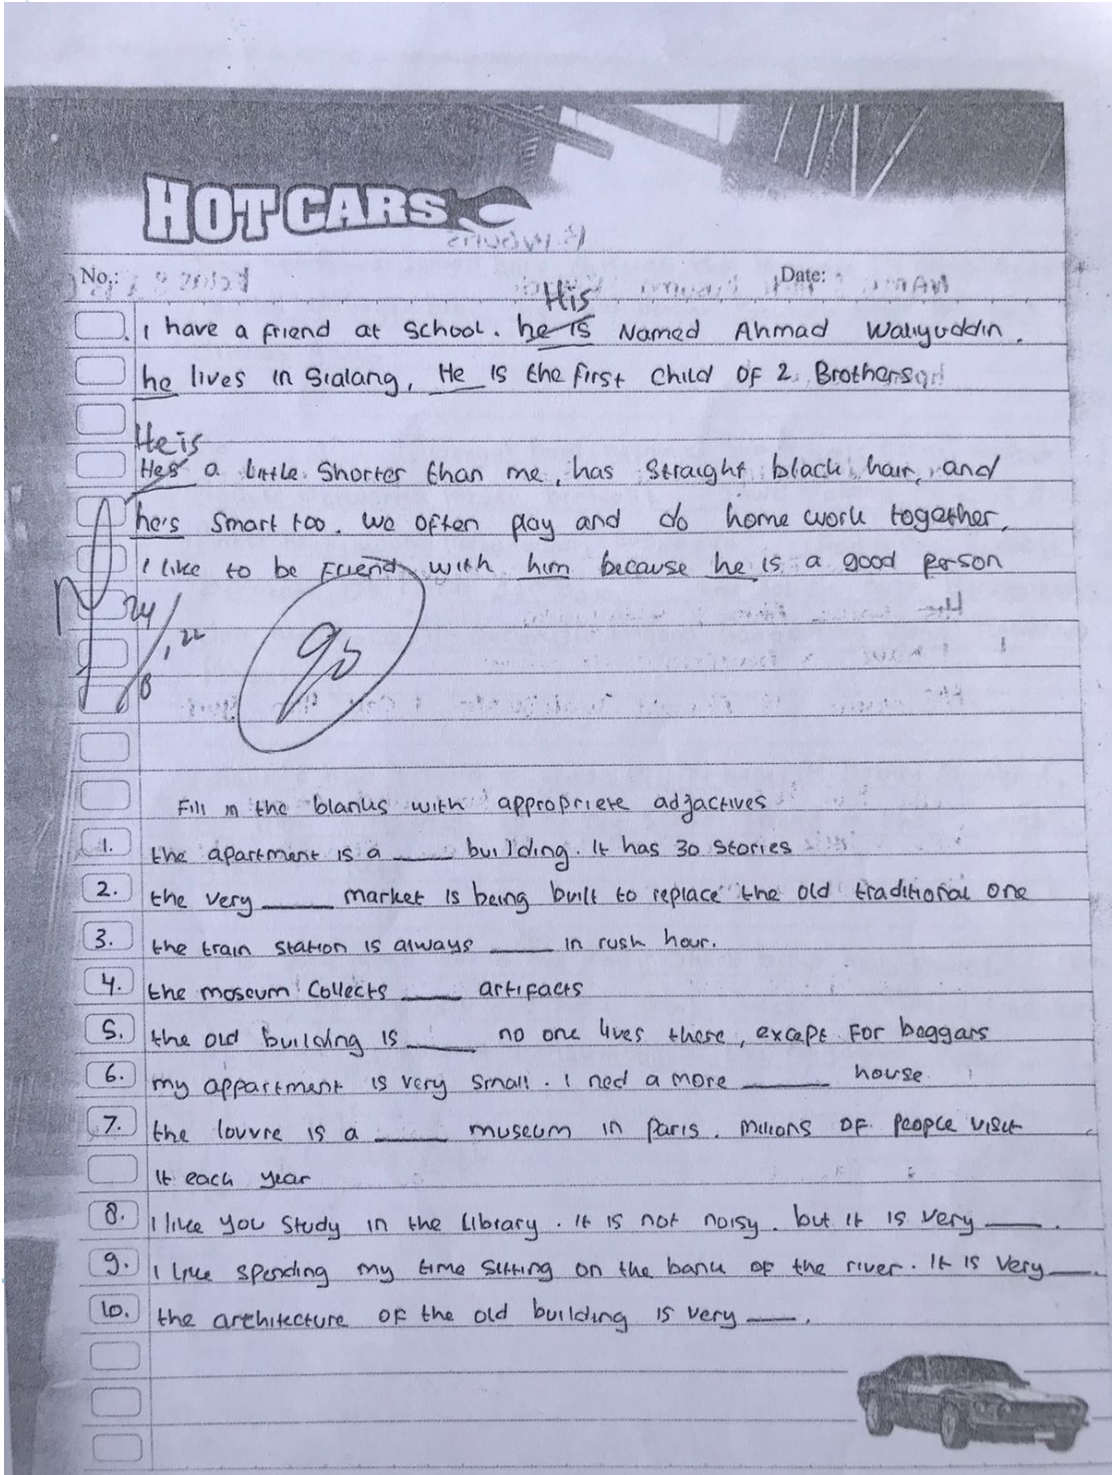 HOT CARS
No.: Date:
His
I have a friend at school. he is Named Ahmad Waliyuddin.
he lives in Sialang, He is the first child of 2 Brothers
He is
He's a little shorter than me, has straight black hair, and
he's smart too. we often play and do home work together,
I like to be Friend with him because he is a good person
24/8, 22
90
Fill in the blanks with appropriete adjactives
1. the apartment is a ____ building. It has 30 stories
2. the very ____ market is being built to replace the old traditional one
3. the train station is always ____ in rush hour.
4. the moseum collects ____ artifacts
5. the old building is ____ no one lives there, except for beggars
6. my appartment is very small. I ned a more ____ house
7. the louvre is a ____ museum in paris. milions of people visit
it each year
8. I like you study in the library. it is not noisy. but it is very ____.
9. I like spending my time sitting on the bank of the river. It is very ____.
10. the architecture of the old building is very ____.